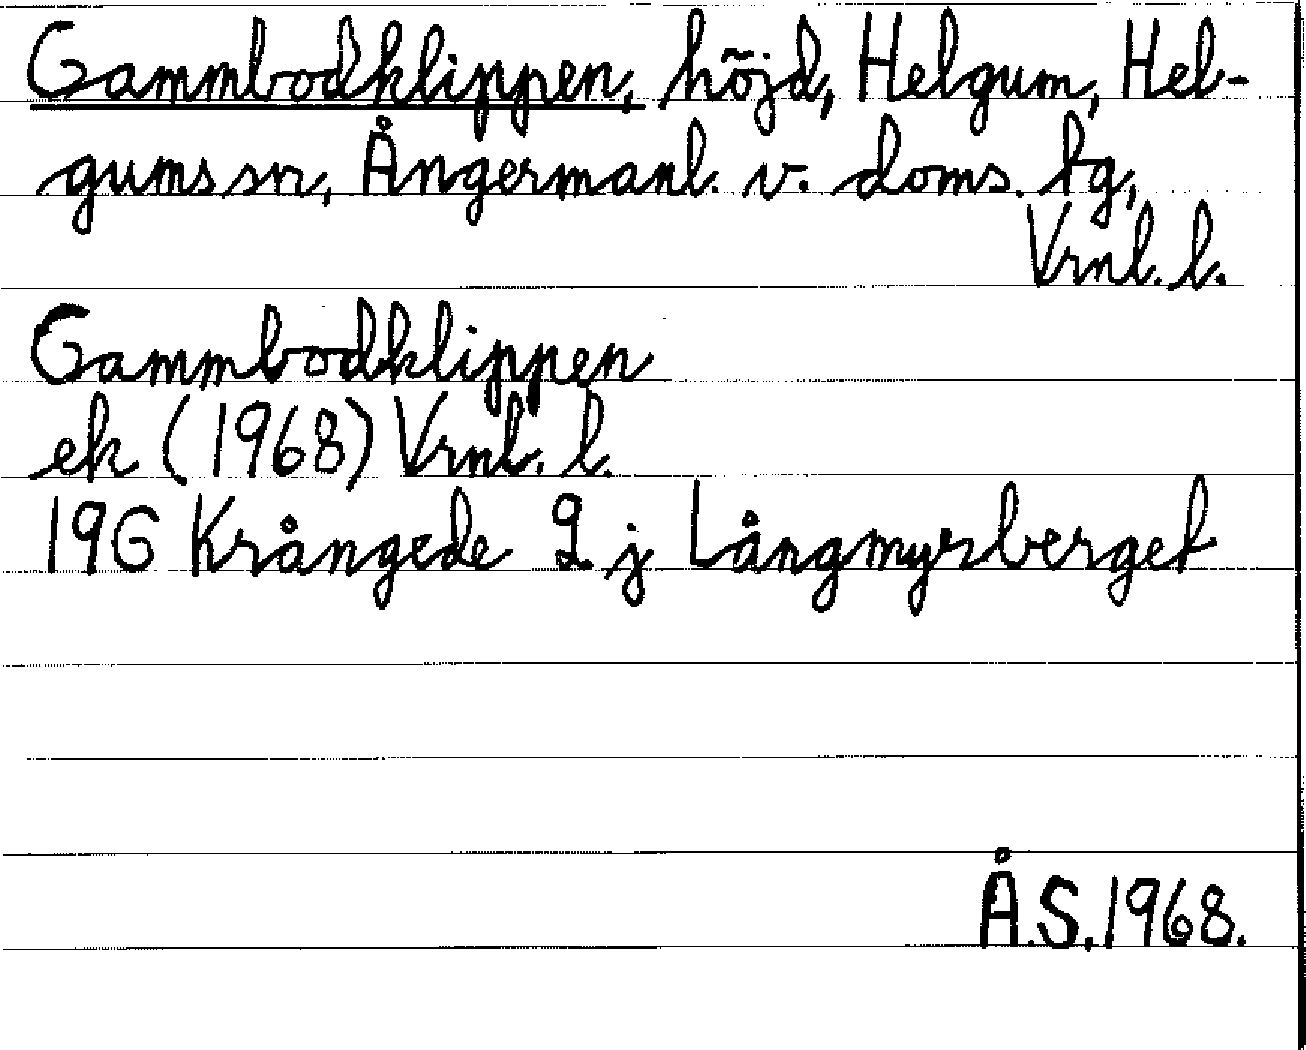 Gammbodklippen, höjd, Helgum, Hel-
gums sn, Ångermanl. v. doms. tg,
Vrnl. l.
Gammbodklippen
ek (1968) Vrnl. l.
19G Krångede 9 j Långmyrberget
Å.S. 1968.